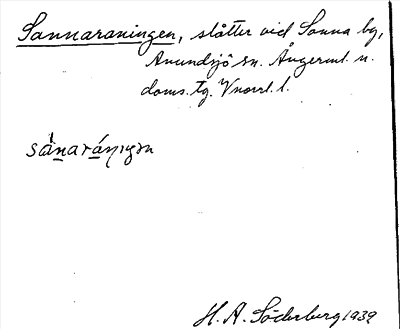 Sannaraningen, slåtter vid Sanna by,
Anundsjö sn. Ångerml. n.
doms. tg. Vnorrl. l.
sànaráŋıgən
H. A. Söderberg 1939